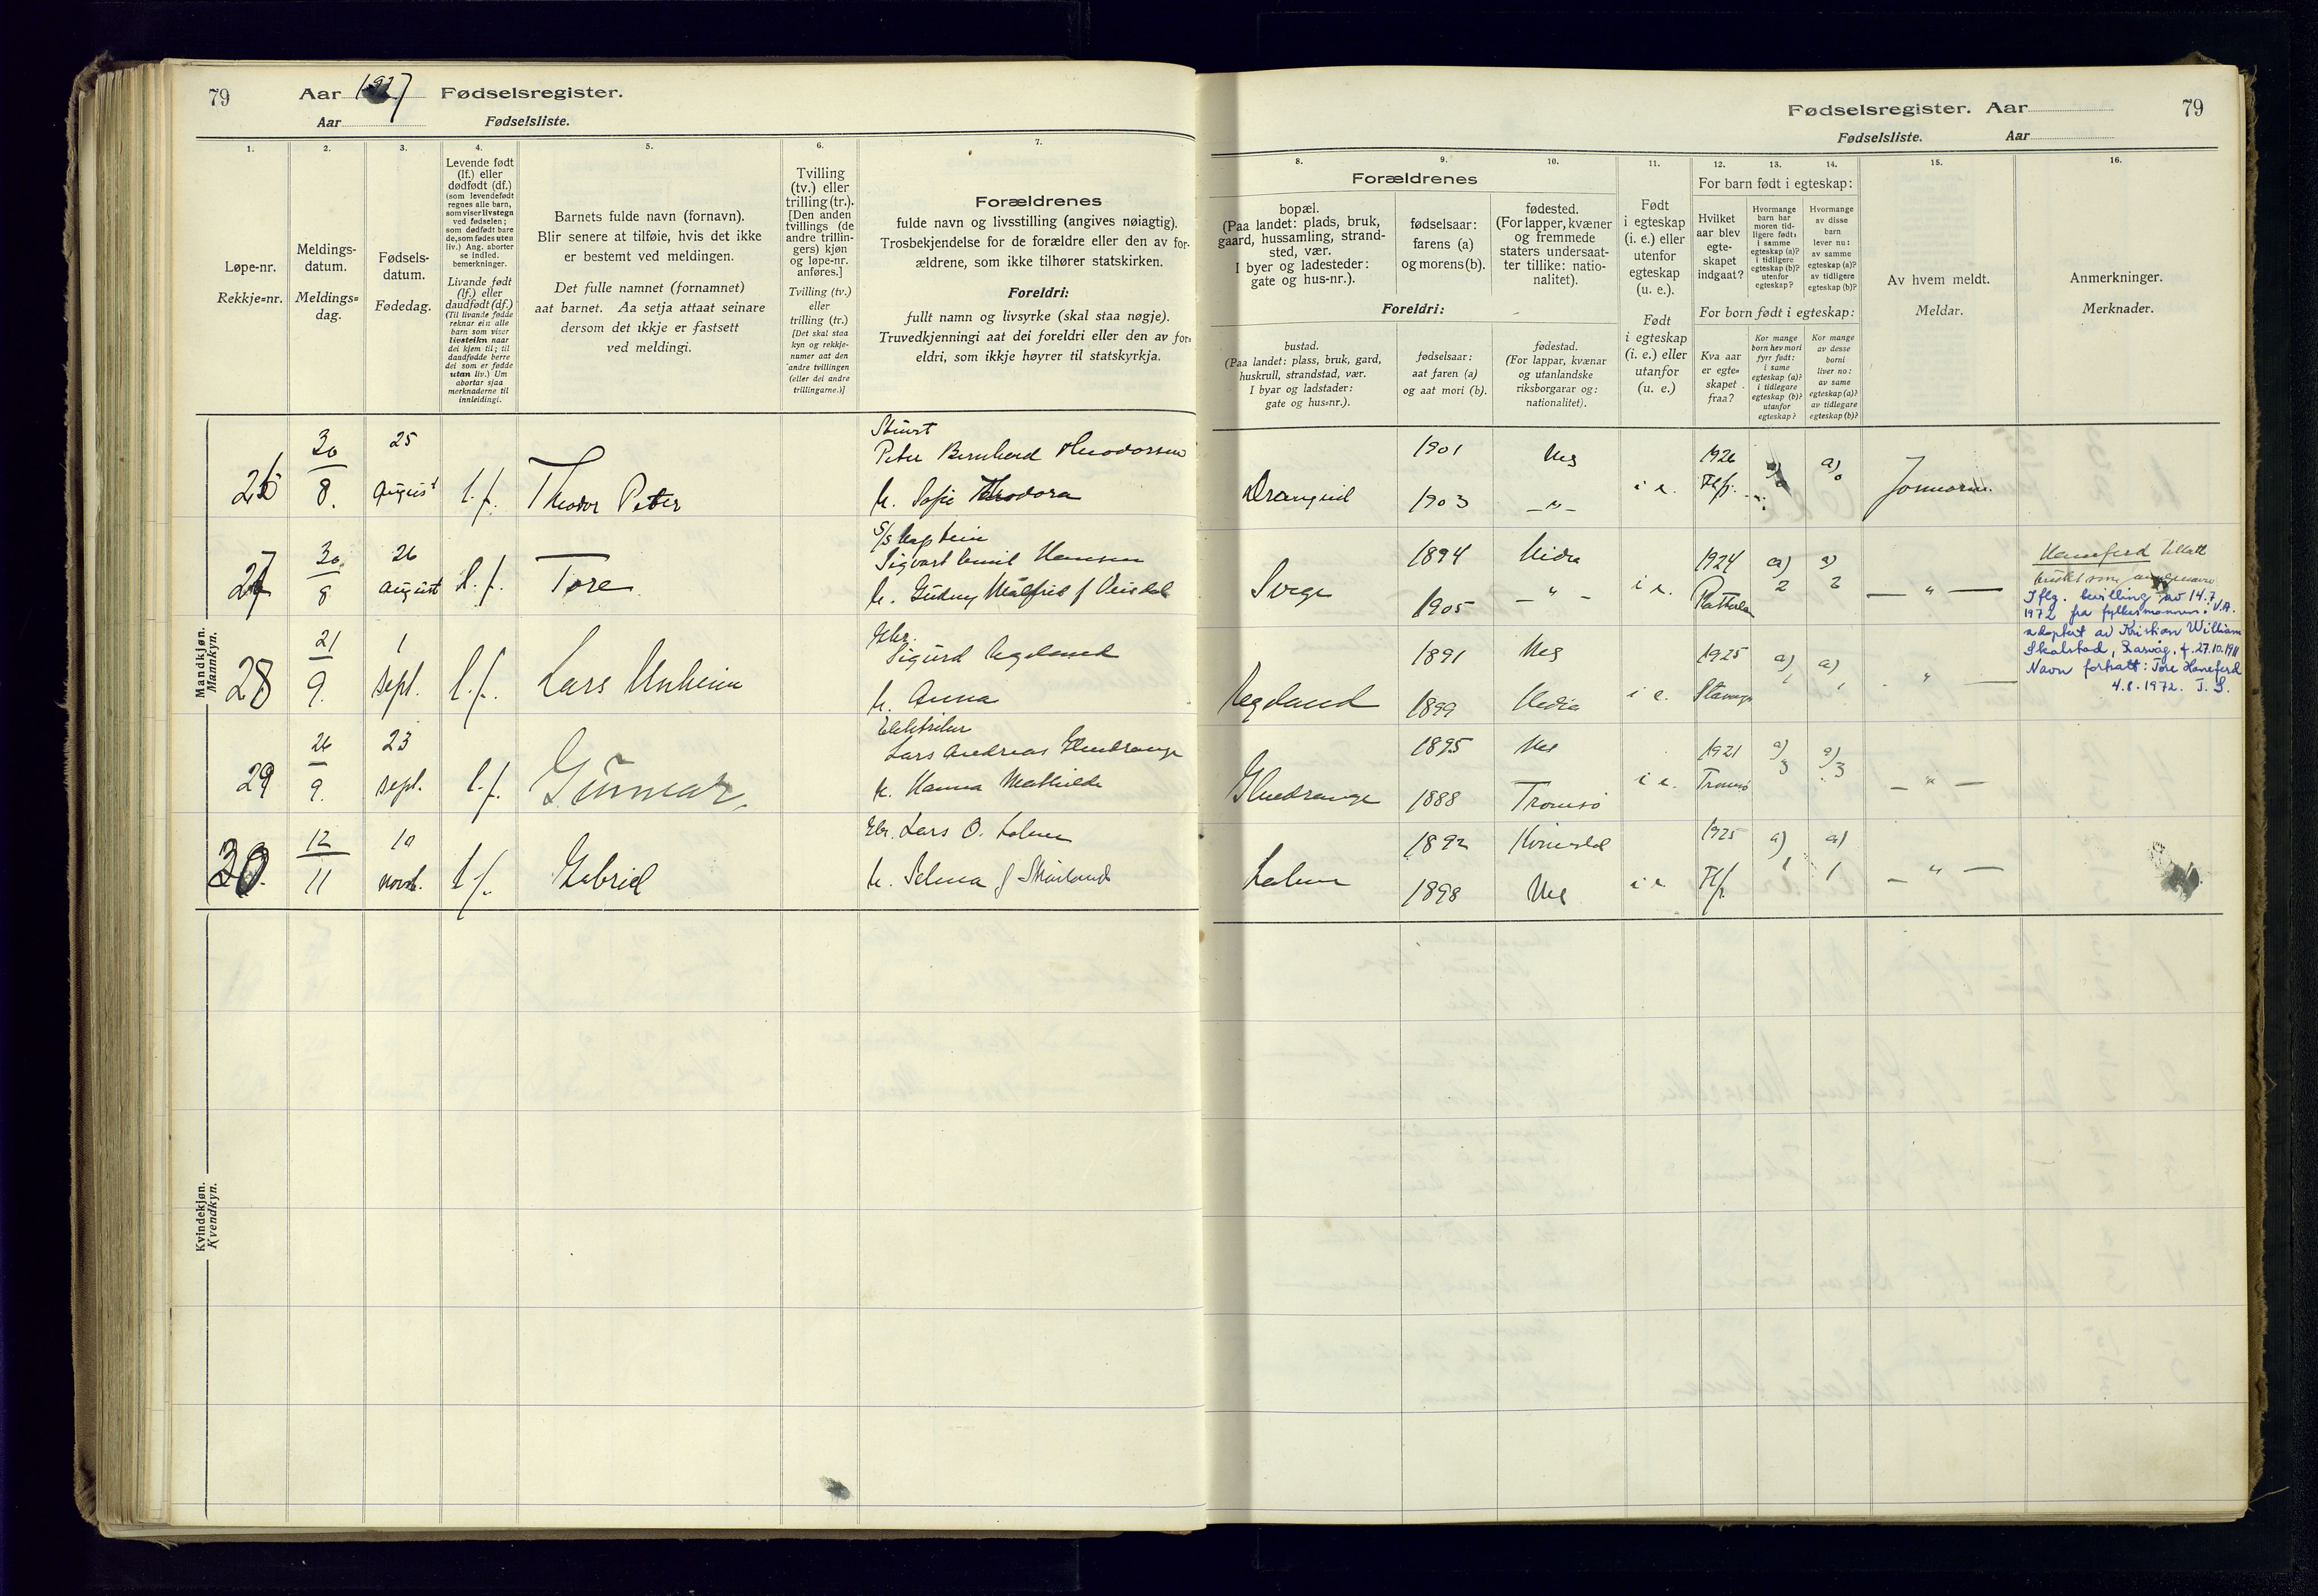 79 Aar 1927 Fødselsregister.
Aar Fødselsliste.
1.
2.
3.
4.
5.
6.
7.
Løpe-nr.
Rekkje=nr.
Meldings-
datum.
Meldings=
dag.
Fødsels-
datum.
Fødedag.
Levende født
(lf.) eller
dødfødt (df.)
(som levendefødt
regnes alle barn,
som viser livstegn
ved fødselen;
som dødfødt bare
de, som fødes uten
liv.) Ang. aborter
se indled.
bemerkninger.
Livande født
(lf.) eller
daudfødt (df.)
(Til livande fødde
reknar ein alle
born som viser
livsteikn naar
dei kjem til; til
daudfødde berre
dei som er fødde
utan liv.) Um
abortar sjaa
merknaderne til
innleidingi.
Barnets fulde navn (fornavn).
Blir senere at tilføie, hvis det ikke
er bestemt ved meldingen.
Det fulle namnet (fornamnet)
aat barnet. Aa setja attaat seinare
dersom det ikkje er fastsett
ved meldingi.
Tvilling
(tv.) eller
trilling (tr.).
[Den anden
tvillings (de
andre trillin-
gers) kjøn
og løpe-nr.
anføres.]
Tvilling (tv.)
eller
trilling (tr.)
[Det skal staa
kyn og rekkje-
numer aat den
andre tvillingen
(eller dei andre
trillingarne.)]
Forældrenes
fulde navn og livsstilling (angives nøiagtig).
Trosbekjendelse for de forældre eller den av for-
ældrene, som ikke tilhører statskirken.
Foreldri:
fullt namn og livsyrke (skal staa nøgje).
Truvedkjenningi aat dei foreldri eller den av for=
eldri, som ikkje høyrer til statskyrkja.
Mandkjøn.
Mannkyn.
26 30/8. 25 August l.f. Theodor Peter
Stuert
Peter Bernhard Theodorsen
h. Sofie Theodora
27 30/8 26 August l.f. Tore
S/s kaptein
Sigvart Emil Hansen
h. Gudny Målfrid f
28 21/9. 1 sept. l.f. Lars Unheim
Gbr.
Sigurd Aegeland
h. Anna
29 26/9. 23 sept. l.f. Gunnar
Elektriker
Lars Andreas
h. Hanna Mathilde
30. 12/11 10 novb. l.f. Gabriel
Gbr. Lars O.
h. Selma f
Kvindekjøn.
Kvendkyn.
Fødselsregister. Aar 79
Fødselsliste. Aar
8.
9.
10.
11.
12.
13.
14.
15.
16.
Forældrenes
bopæl.
(Paa landet: plads, bruk,
gaard, hussamling, strand-
sted, vær.
I byer og ladesteder:
gate og hus-nr.).
fødselsaar:
farens (a)
og morens (b).
fødested.
(For lapper, kvæner
og fremmede
staters undersaat-
ter tillike: natio-
nalitet).
Foreldri:
bustad.
(Paa landet: plass, bruk, gard,
huskrull, strandstad, vær.
I byar og ladstader:
gate og hus=nr.).
fødselsaar:
aat faren (a)
og aat mori (b).
fødestad.
(For lappar, kvænar
og utanlandske
riksborgarar og:
nationalitet).
Født
i egteskap
(i. e.) eller
utenfor
egteskap
(u. e.).
Født
i egteskap
(i. e.) eller
utanfor
(u. e.)
For barn født i egteskap:
Hvilket
aar blev
egte-
skapet
indgaat?
Hvormange
barn har
moren tid-
ligere født:
i samme
egteskap (a)?
i tidligere
egteskap (b)?
utenfor
egteskap?
Hvormange
av disse
barn
lever nu:
av samme
egteskap (a)?
av tidligere
egteskap (b)?
For born født i egteskap:
Kva aar
er egte=
skapet
fraa?
Kor mange
born hev mori
fyrr født:
i same
egteskap (a)?
i tidlegare
egteskap (b)?
utanfor
egteskap?
Kor mange
av desse
borni
liver no:
av same
egteskap (a)?
av tidlegare
egteskap (b)?
Av hvem meldt.
Meldar.
Anmerkninger.
Merknader.
1901 Nes 1926 a)
1903 — " — i e. Flf. Jormoren.
1894 Hidra 1924 a) 2 a) 2
1905 — " — i e. — " —
Haneferd tillatt
brukt som
Iflg. bevilling av 14.7.
1972 fra fylkesmannen i V.A.
adoptert av Kristian William
Skalstad, Rasvåg, f. 27.10.1911
Navn fortsatt: Tore Haneferd
4.8.1972. T. S.
Aegeland 1891 Nes 1925 a) 1 a) 1
1899 Hidra i e. Stavanger — " —
1895 Nes 1921 a) 3 a) 3
1888 Tromsø i e. Tromsø — " —
1892 1925 a) 1 a) 1
1898 Nes i e. Flf. — " —